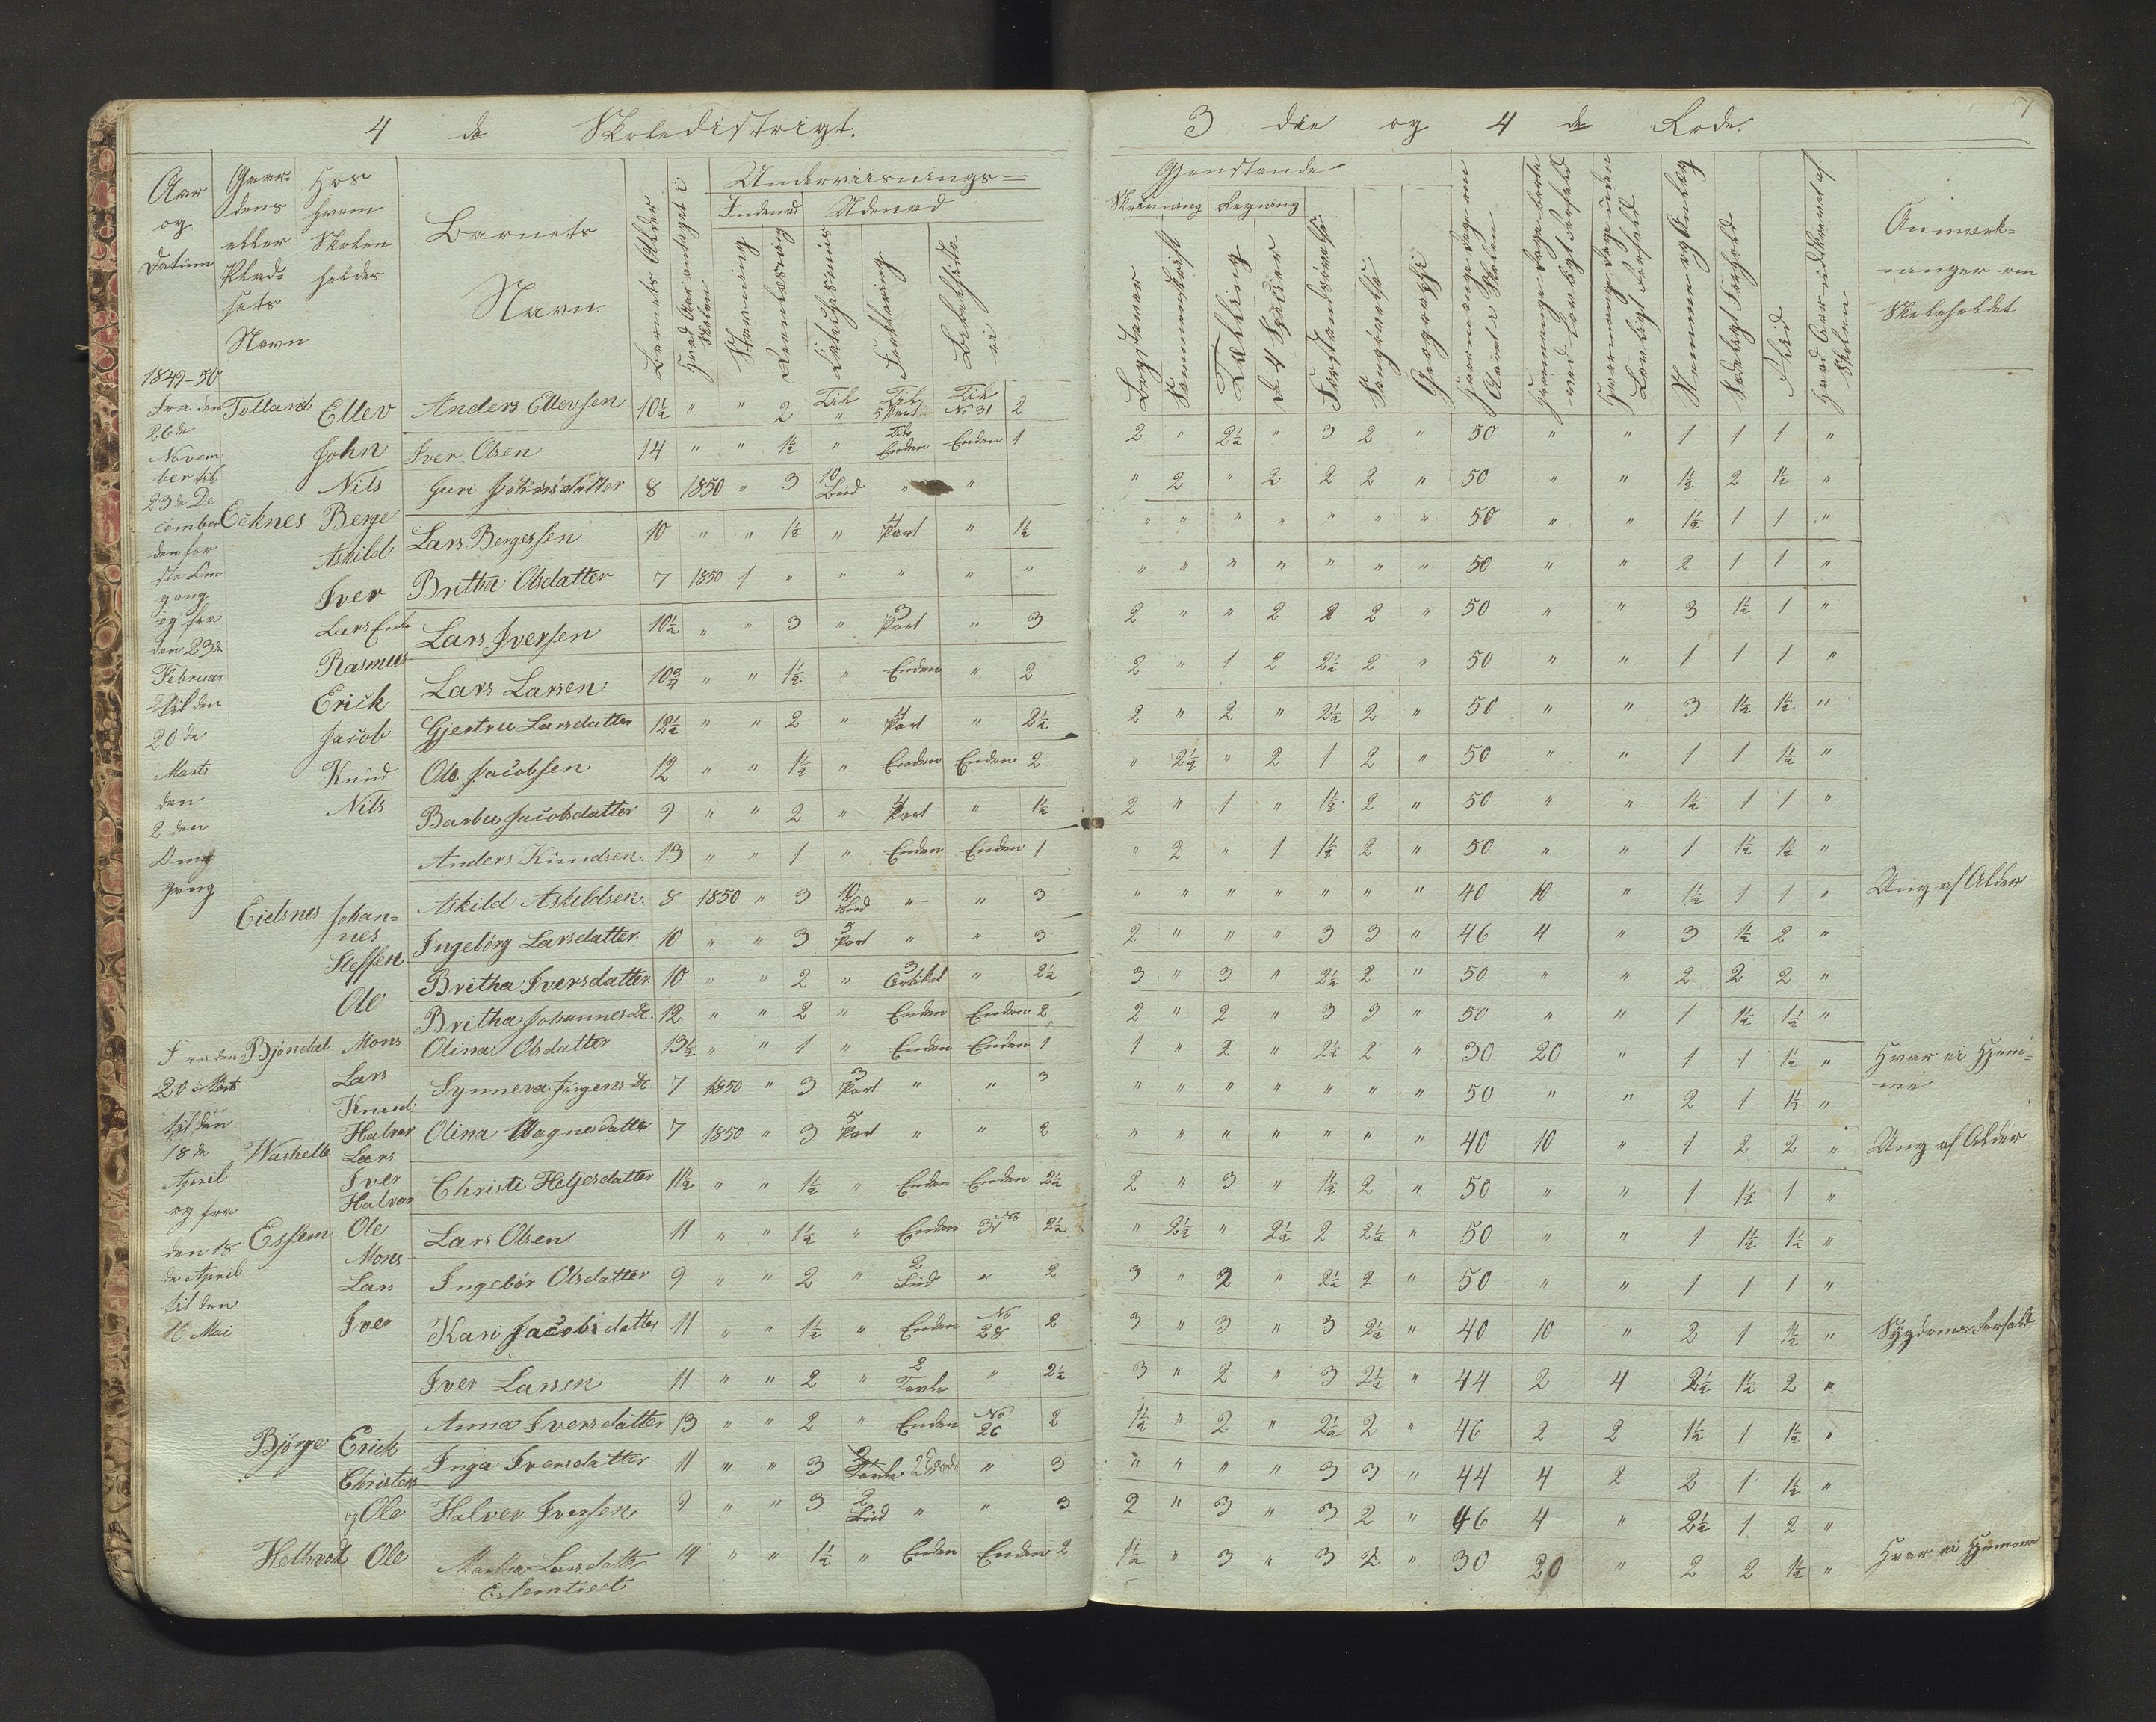 4 de Skoledistrigt.
Aar og Datum
Gaardens eller Pladsets Navn
Hos hvem Skolen holdes
Barnets Navn
Barnets Alder
Hvad Aar antaget i Skolen
Underviisnings=
Indenad Udenad
Stavning
Reenlæsning
Forklaring
1849-50
Fra den 26de November til 23de December den første Omgang og fra den 23de Februar til den 20de Marts den 2den Omgang
Tolland Ellev
John
Nils
Eiknes Berge
Askild
Iver
Lars Enke
Rasmus
Erick
Jacob
Knud
Nils
Eidsnes Johannes
Steffen
Ole
Fra den 20de Marts til den 18de April og fra den 18de April til den 16 Mai
Bjøndal Mons
Lars
Knud
Halvor
Washelle Lars
Iver
Halvor
Essem Ole
Mons
Lars
Iver
Bjørge Erick
Christen
og Ole
Helhvedt Ole
Anders Ellevsen 10½ " " 2 Til " Til 5 Part Til No 31 2
Iver Olsen 14 " " 1½ " Til Enden Enden 1
Guri Johnsdatter 8 1850 " 3 10 Bud " "
Lars Bergessen 10 " " 1½ " 4 Part " 1½
Britha Olsdatter 7 1850 1 " " " " "
Lars Iversen 10½ " " 3 " 3 Part " 3
Lars Larsen 10¾ " " 1½ " Enden " 2
Gjertru Larsdatter 12½ " " 2 " 4 Part " 2½
Ole Jacobsen 12 " " 1½ " Enden Enden 2
Barbu Jacobsdatter 9 " " 2 " 4 Part " 1½
Anders Knudsen 13 " " 1 " Enden Enden 1
Askild Askildsen 8 1850 " 3 10 Bud " " 3
Ingebørg Larsdatter 10 " " 3 5 Part " " 3
Britha Iversdatter 10 " " 2 " 3 Artikel " 2½
Britha Johannes Dt. 12 " " 2 " Enden Enden 2
Olina Olsdatter 13½ " " 1 " Enden Enden 1
Synneva Jørgens Dt 7 1850 " 3 3 Part " " 3
Olina Magnesdatter 7 1850 " 3 5 Part " " 2
Christi Heljesdatter 11½ " " 1½ " Enden Enden 2½
Lars Olsen 11 " " 1½ " Enden No 31 2½
Ingebør Olsdatter 9 " " 2 " 2 Bud " 2
Kari Jacobsdatter 11 " " 1½ " Enden No 28 2
Iver Larsen 11 " " 2 " 2 Tavle " 2½
Anna Iversdatter 13 " " 2 " Enden No 26 2
Inga Iversdatter 11 " " 3 2 Tavle " 3
Halvor Iversen 9 " " 3 2 Bud " " 3
Martha Larsdatter 14 " " 1½ " Enden Enden 2
3 die og 4 de Rode. 7
Gjenstande
Skrivning Regning
Bogstaver
Sammenskrift
Tælling
De 4 Spesier
Forstandsøvelse
Sangøvelse
Geografi
Hvormange Dage om Aaret i Skolen
Hvormange Dage borte med Lovligt Forfald
Hvormange Dage uden Lovligt Forfald
Nemme og Anlæg
Sædeligt Forhold
Flid
Hvad Aar udskrevet af Skolen
Anmærkninger om Skoleholdet
2 " 2½ " 3 2 " 50 " " 1 1 1 "
" 2 " 2 2 2 " 50 " " 1½ 2 1½ "
" " " " " " " 50 " " 1½ 1 1 "
" " " " " " " 50 " " 2 1 1 "
2 " " 2 2 2 " 50 " " 3 1½ 1 "
2 " 1 2 2½ 2 " 50 " " 1 1 1 "
2 " 2 " 2½ 2 " 50 " " 3 1½ 1½ "
" 2½ " 2 1 2 " 50 " " 1 1 1½ "
2 " 1 " 1½ 2 " 50 " " 1½ 1 1 "
" 2 " 1 1½ 2 " 50 " " 1 1½ 1½ "
" " " " " " " 40 10 " 1½ 1 1 " Ung af Alder
2 " " " 3 3 " 46 4 " 3 1½ 2 "
3 " 3 " 2½ 2 " 50 " " 2 2 2 "
2 " 2 " 3 3 " 50 " " 1 1½ 1½ "
1 " 2 " 2½ 2 " 30 20 " 1 1 1½ " Hvar ei Hjemme
" " " " " " " 50 " " 2 1 1½ "
" " " " " " " 40 10 " 1 2 2 " Ung af Alder
2 " 3 " 1½ 2 " 50 " " 1 1½ 1 "
" 2½ " 2½ 2 2½ " 50 " " 1 1½ 1½ "
3 " 2 " 2½ 2 " 50 " " 1 1 1 "
3 " 3 " 3 2½ " 40 10 " 2 1 1½ " Sygdoms Forfald
3 " 2 " 3 2½ " 44 2 4 2½ 1½ 2 "
1½ " 2 " 2½ 2 " 46 2 2 1½ 1 1½ "
" " " " 3 3 " 44 4 2 2 1 1½ "
2 " 3 " 3 2 " 46 4 " 2½ 1 2 "
1½ " 3 " 3 2 " 30 20 " 2 2 1½ " Hvar ei Hjemme